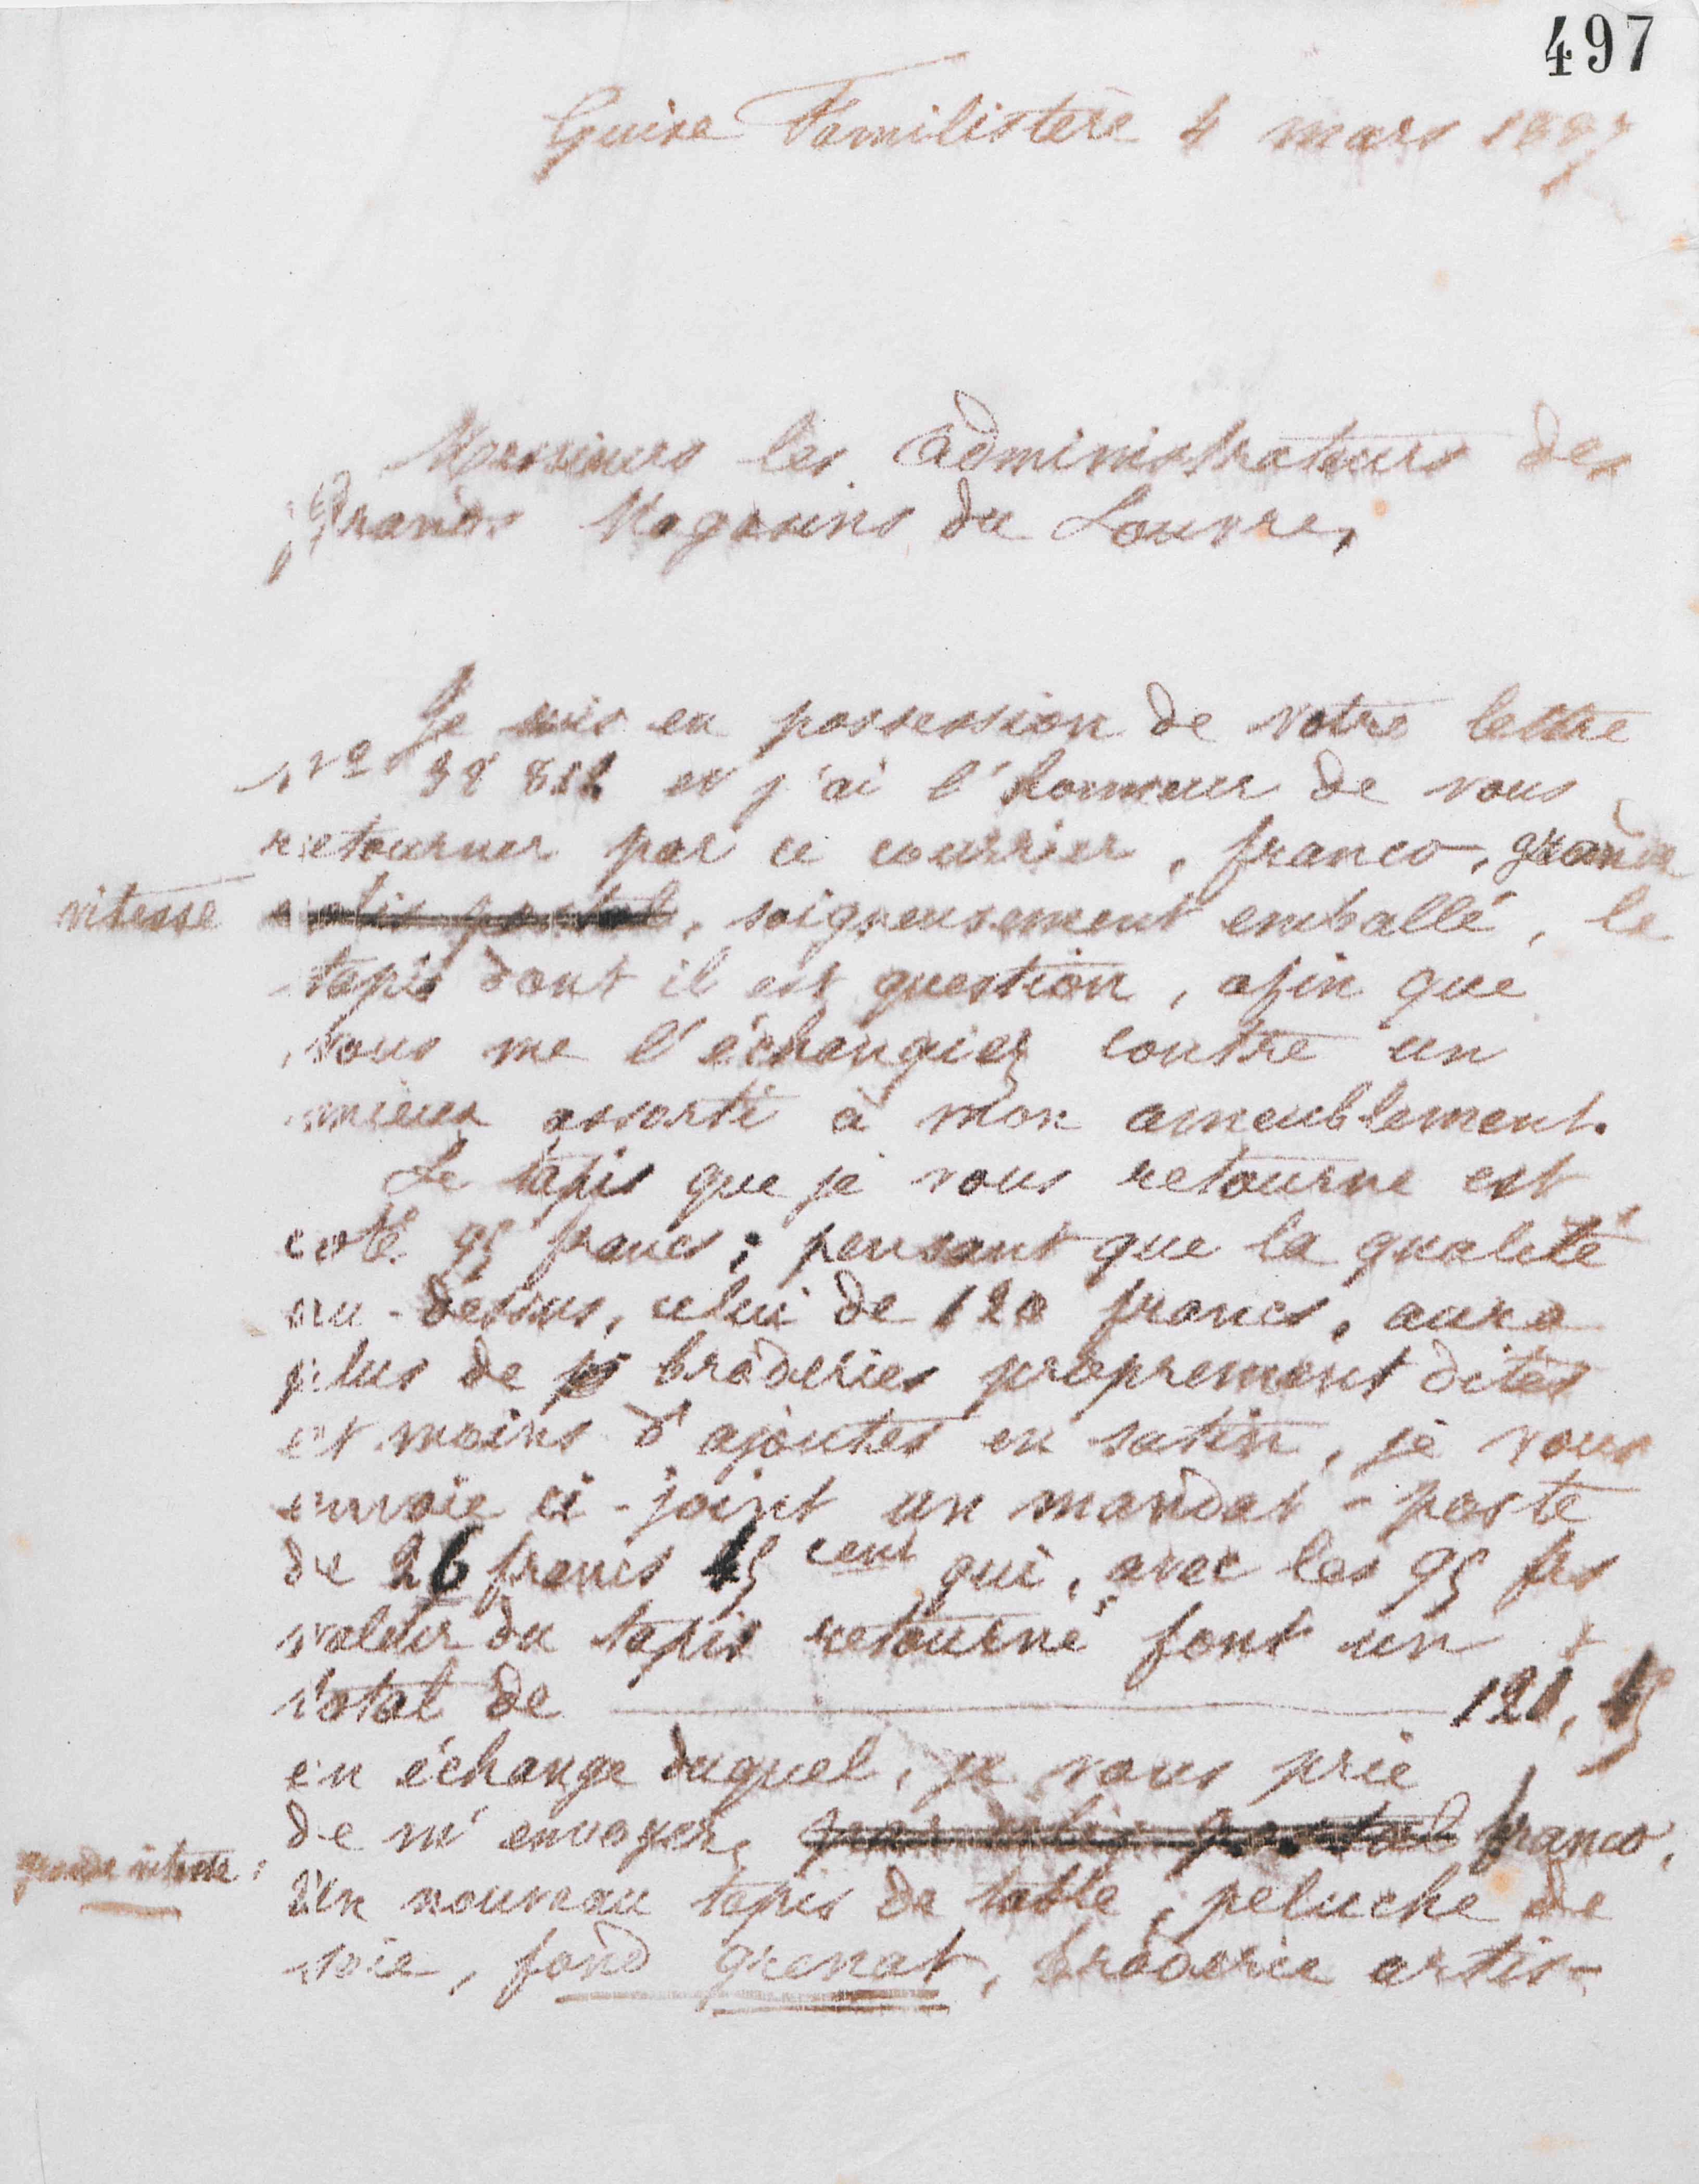 497
Guise Familistère 4 mars 1887
Messieurs les administrateurs des
Grands Magasins du Louvre,
Je suis en possession de votre lettre
et j'ai l'honneur de vous
retourner par ce courrier, franco, grande
vitesse colis postal, soigneusement emballé, le
tapis dont il est question, afin que
vous me l'échangiez contre un
mieux assorti à mon ameublement.
Le tapis que je vous retourne est
coté 95 francs; pensant que la qualité
au-dessus, celui de 120 francs, aura
plus de broderies proprement dites
et moins d'ajoutés en satin, je vous
envoie ci-joint un mandat-poste
de 26 francs 45 cent qui, avec les 95 frs
valeur du tapis retourné font un
total de 121,45
en échange duquel, je vous prie
de m'envoyer, par colis postal franco,
grande vitesse,
un nouveau tapis de table, peluche de
soie, fond grenat, broderie artis-